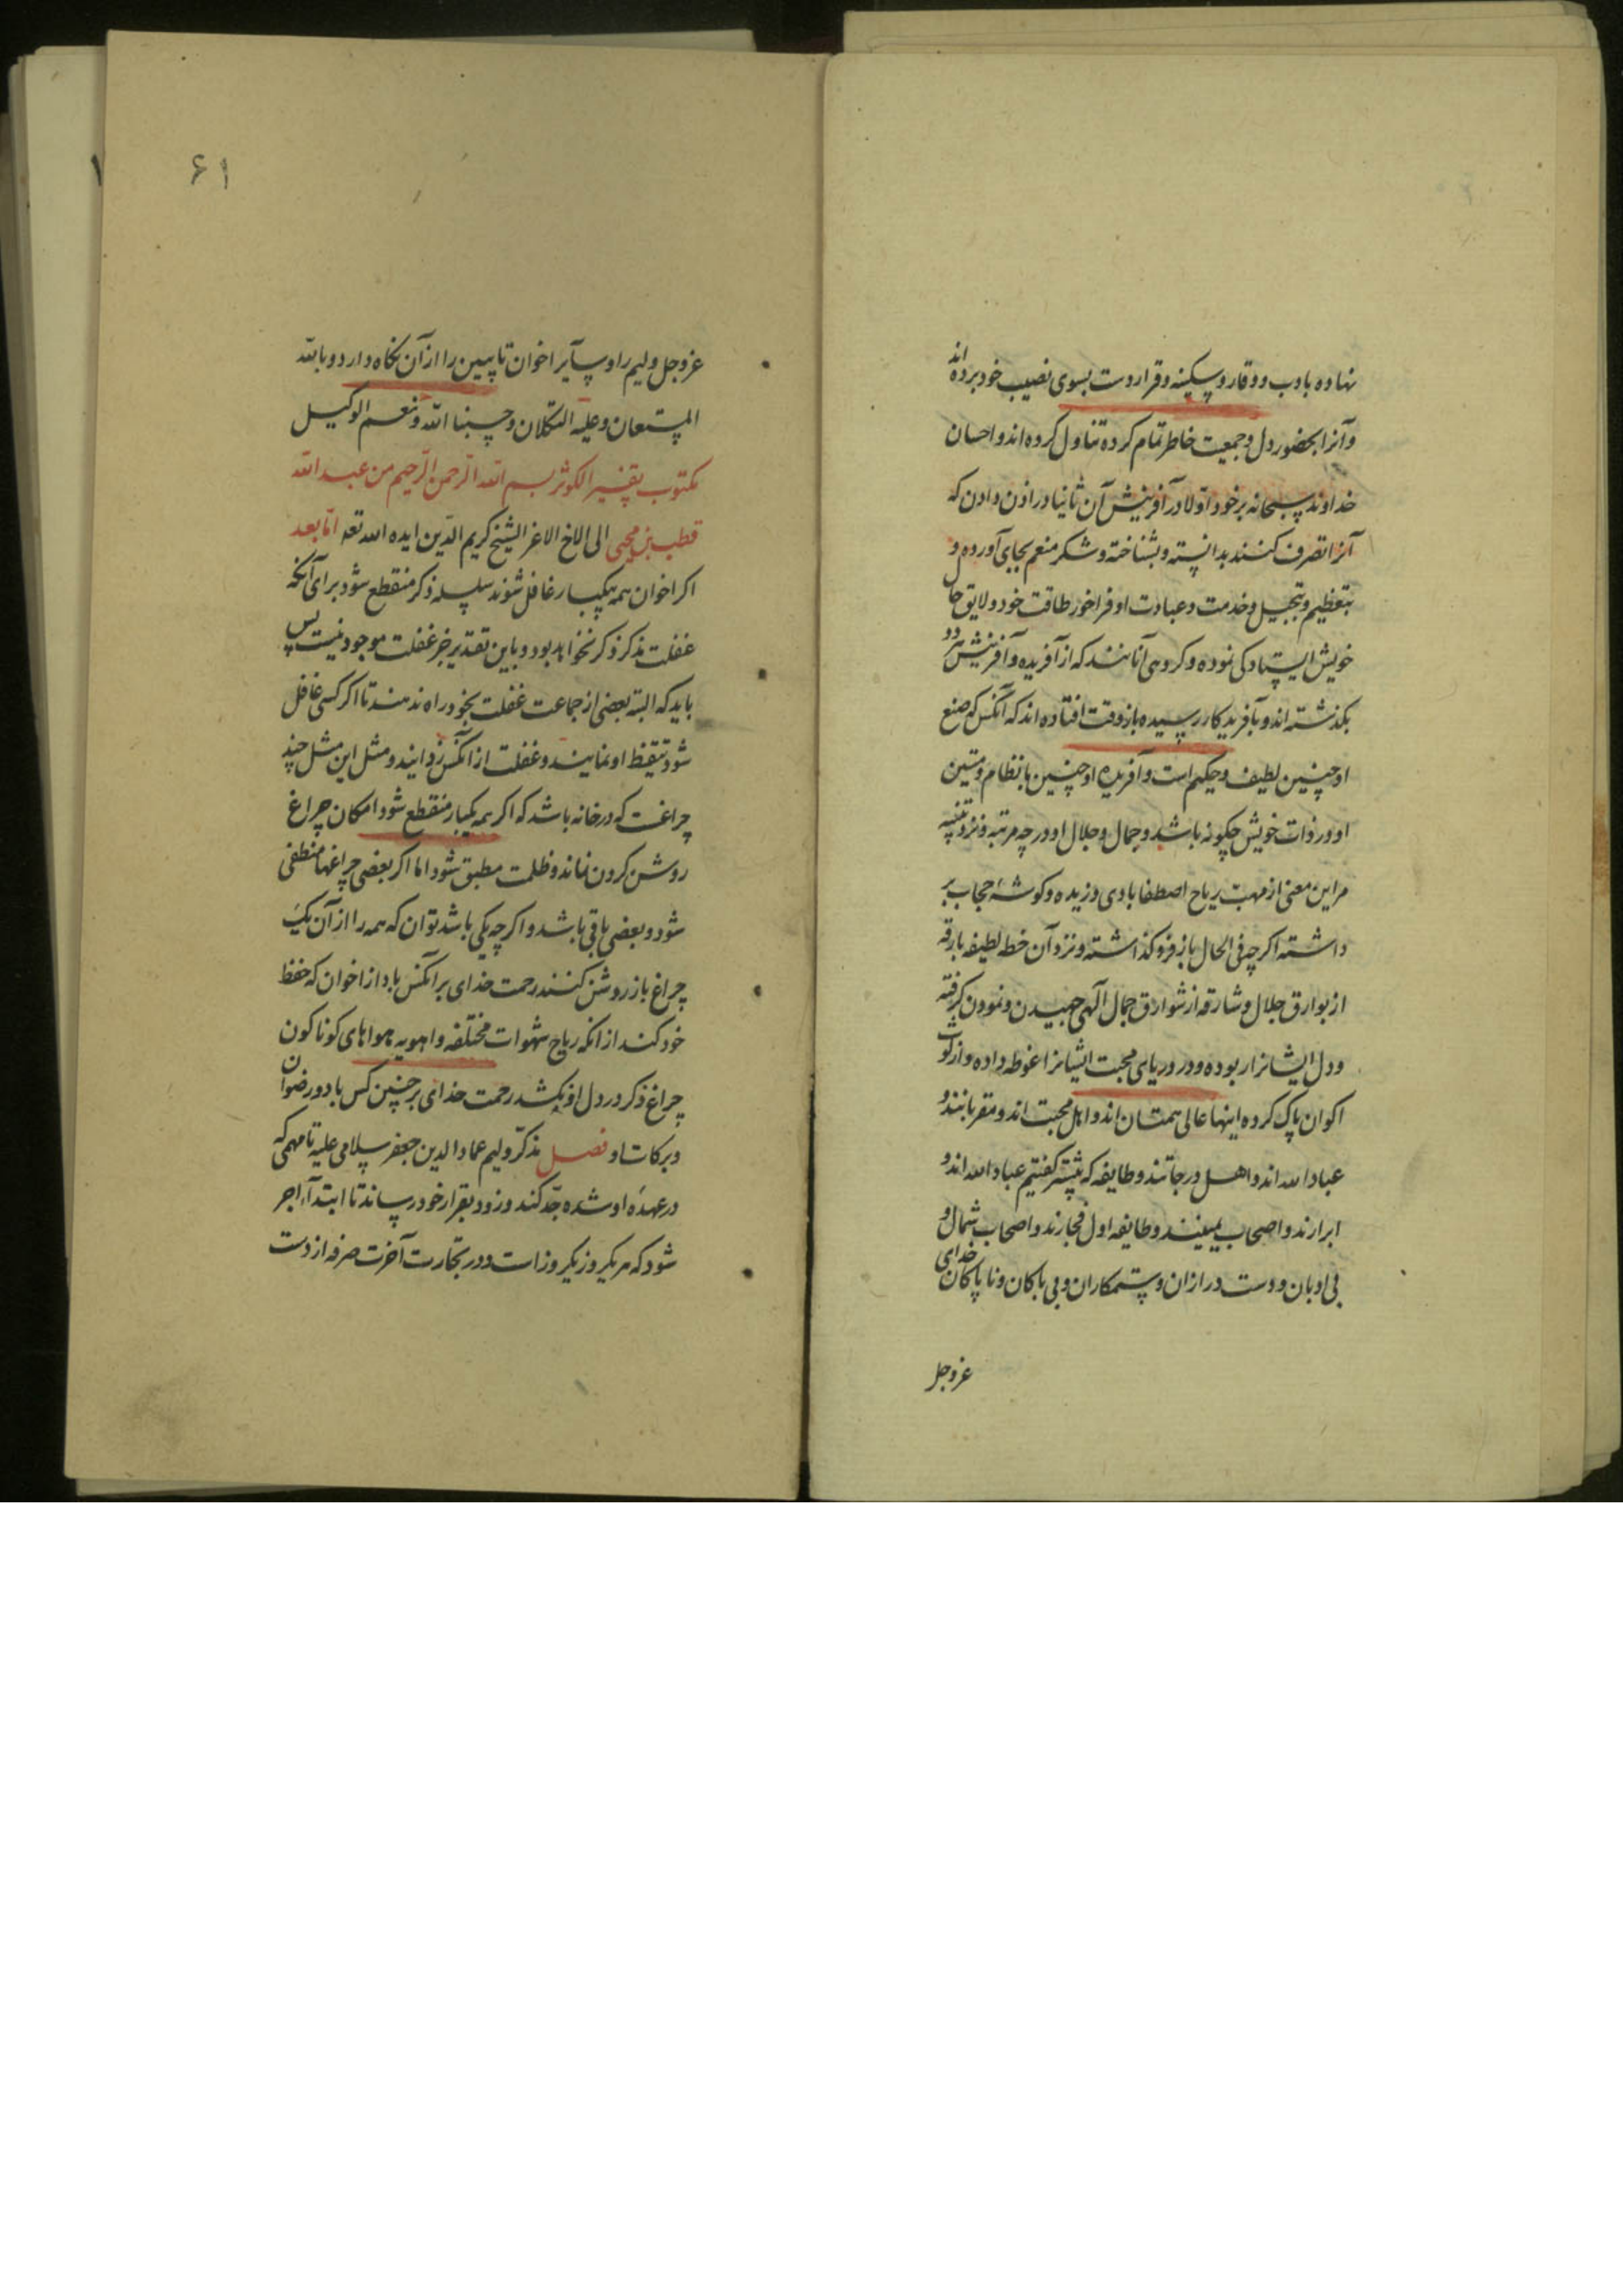 نهاده بادب و وقار و سکینه و قرار دست بسوی نصیب خود برده اند
و آنرا بحضور دل و جمعیت خاطر تمام کرده تناول کرده اند و احسان
خداوند سبحانه بر خود اولا در آفرینش آن ثانیا در اذن دادن که
آنرا تصرف کنند بدانسته و بشناخته و شکر منعم بجای آورده و
بتعظیم و تبجیل و خدمت و عبادت او فراخور طاقت خود و لایق حال
خویش ایستادگی نموده و کروهی آنانند که از آفریده و آفرینش هر دو
بکذشته اند و بآفریدکار رسیده باز وقت افتاده اند که آنکس که صنع
او چنین لطیف و حکیم است و آفریده او چنین بانظام و متین
او در ذات خویش چکونه باشد و جمال و جلال او در چه مرتبه و نزد تنبه
مر این معنی از مهب ریاح اصطفا بادی وزیده و کوشه حجاب بر
داشته اکرچه فی الحال باز فرو کذاشته و نزد آن خطه لطیفه بارقه
از بوارق جلال و شارقه از شوارق جمال الهی جهیدن و نمودن کرفته
و دل ایشانرا ربوده و در دریای محبت ایشانرا غوطه داده و از لوث
اکوان پاک کرده اینها عالی همتان اند و اهل محبت اند و مقربانند و
عباد الله اند و اهل درجاتند و طایفه که پیشتر کفتیم عباد الله اند و
ابرارند و اصحاب یمینند و طایفه اول فجارند و اصحاب شمال و
بی ادبان و دست درازان و ستمکاران و بی باکان و ناپاکان خدای
عز و جل
۶۱
عز و جل ولیم را و سایر اخوان تایبین را از آن نکاه دارد و بالله
المستعان و علیه التکلان و حسبنا الله و نعم الوکیل
مکتوب بتفسیر الکوثر بسم الله الرحمن الرحیم من عبد الله
قطب بن محیی الی الاخ الاعز الشیخ کریم الدین ایده الله تعه اما بعد
اکر اخوان همه بیکبار غافل شوند سلسله ذکر منقطع شود برای آنکه
غفلت مذکر ذکر نخواهد بود و باین تقدیر جز غفلت موجود نیست پس
باید که البته بعضی از جماعت غفلت بخود راه ندهند تا اکر کسی غافل
شود تیقظ او نمایند و غفلت از آنکس زدایند و مثل این مثل چند
چراغست که در خانه باشد که اکر همه بیکبار منقطع شود امکان چراغ
روشن کردن نماند و ظلمت مطبق شود اما اکر بعضی چراغها منطفی
شود و بعضی باقی باشد و اکرچه یکی باشد توان که همه را از آن یک
چراغ باز روشن کنند رحمت خدای بر آنکس باد از اخوان که حفظ
خود کند از انکه ریاح شهوات مختلفه و اهویه هواهای کوناکون
چراغ ذکر در دل او بکشد رحمت خدای بر چنین کس باد و رضوان
و برکات او فصل مذکر ولیم عماد الدین جعفر سلامی علیه تا مهمی که
در عهده او شده جد کند و زود بقرار خود رساند تا ابتدآء اجر
شود که هر یکروز یکروز است و در تجارت آخرت صرفه از دست